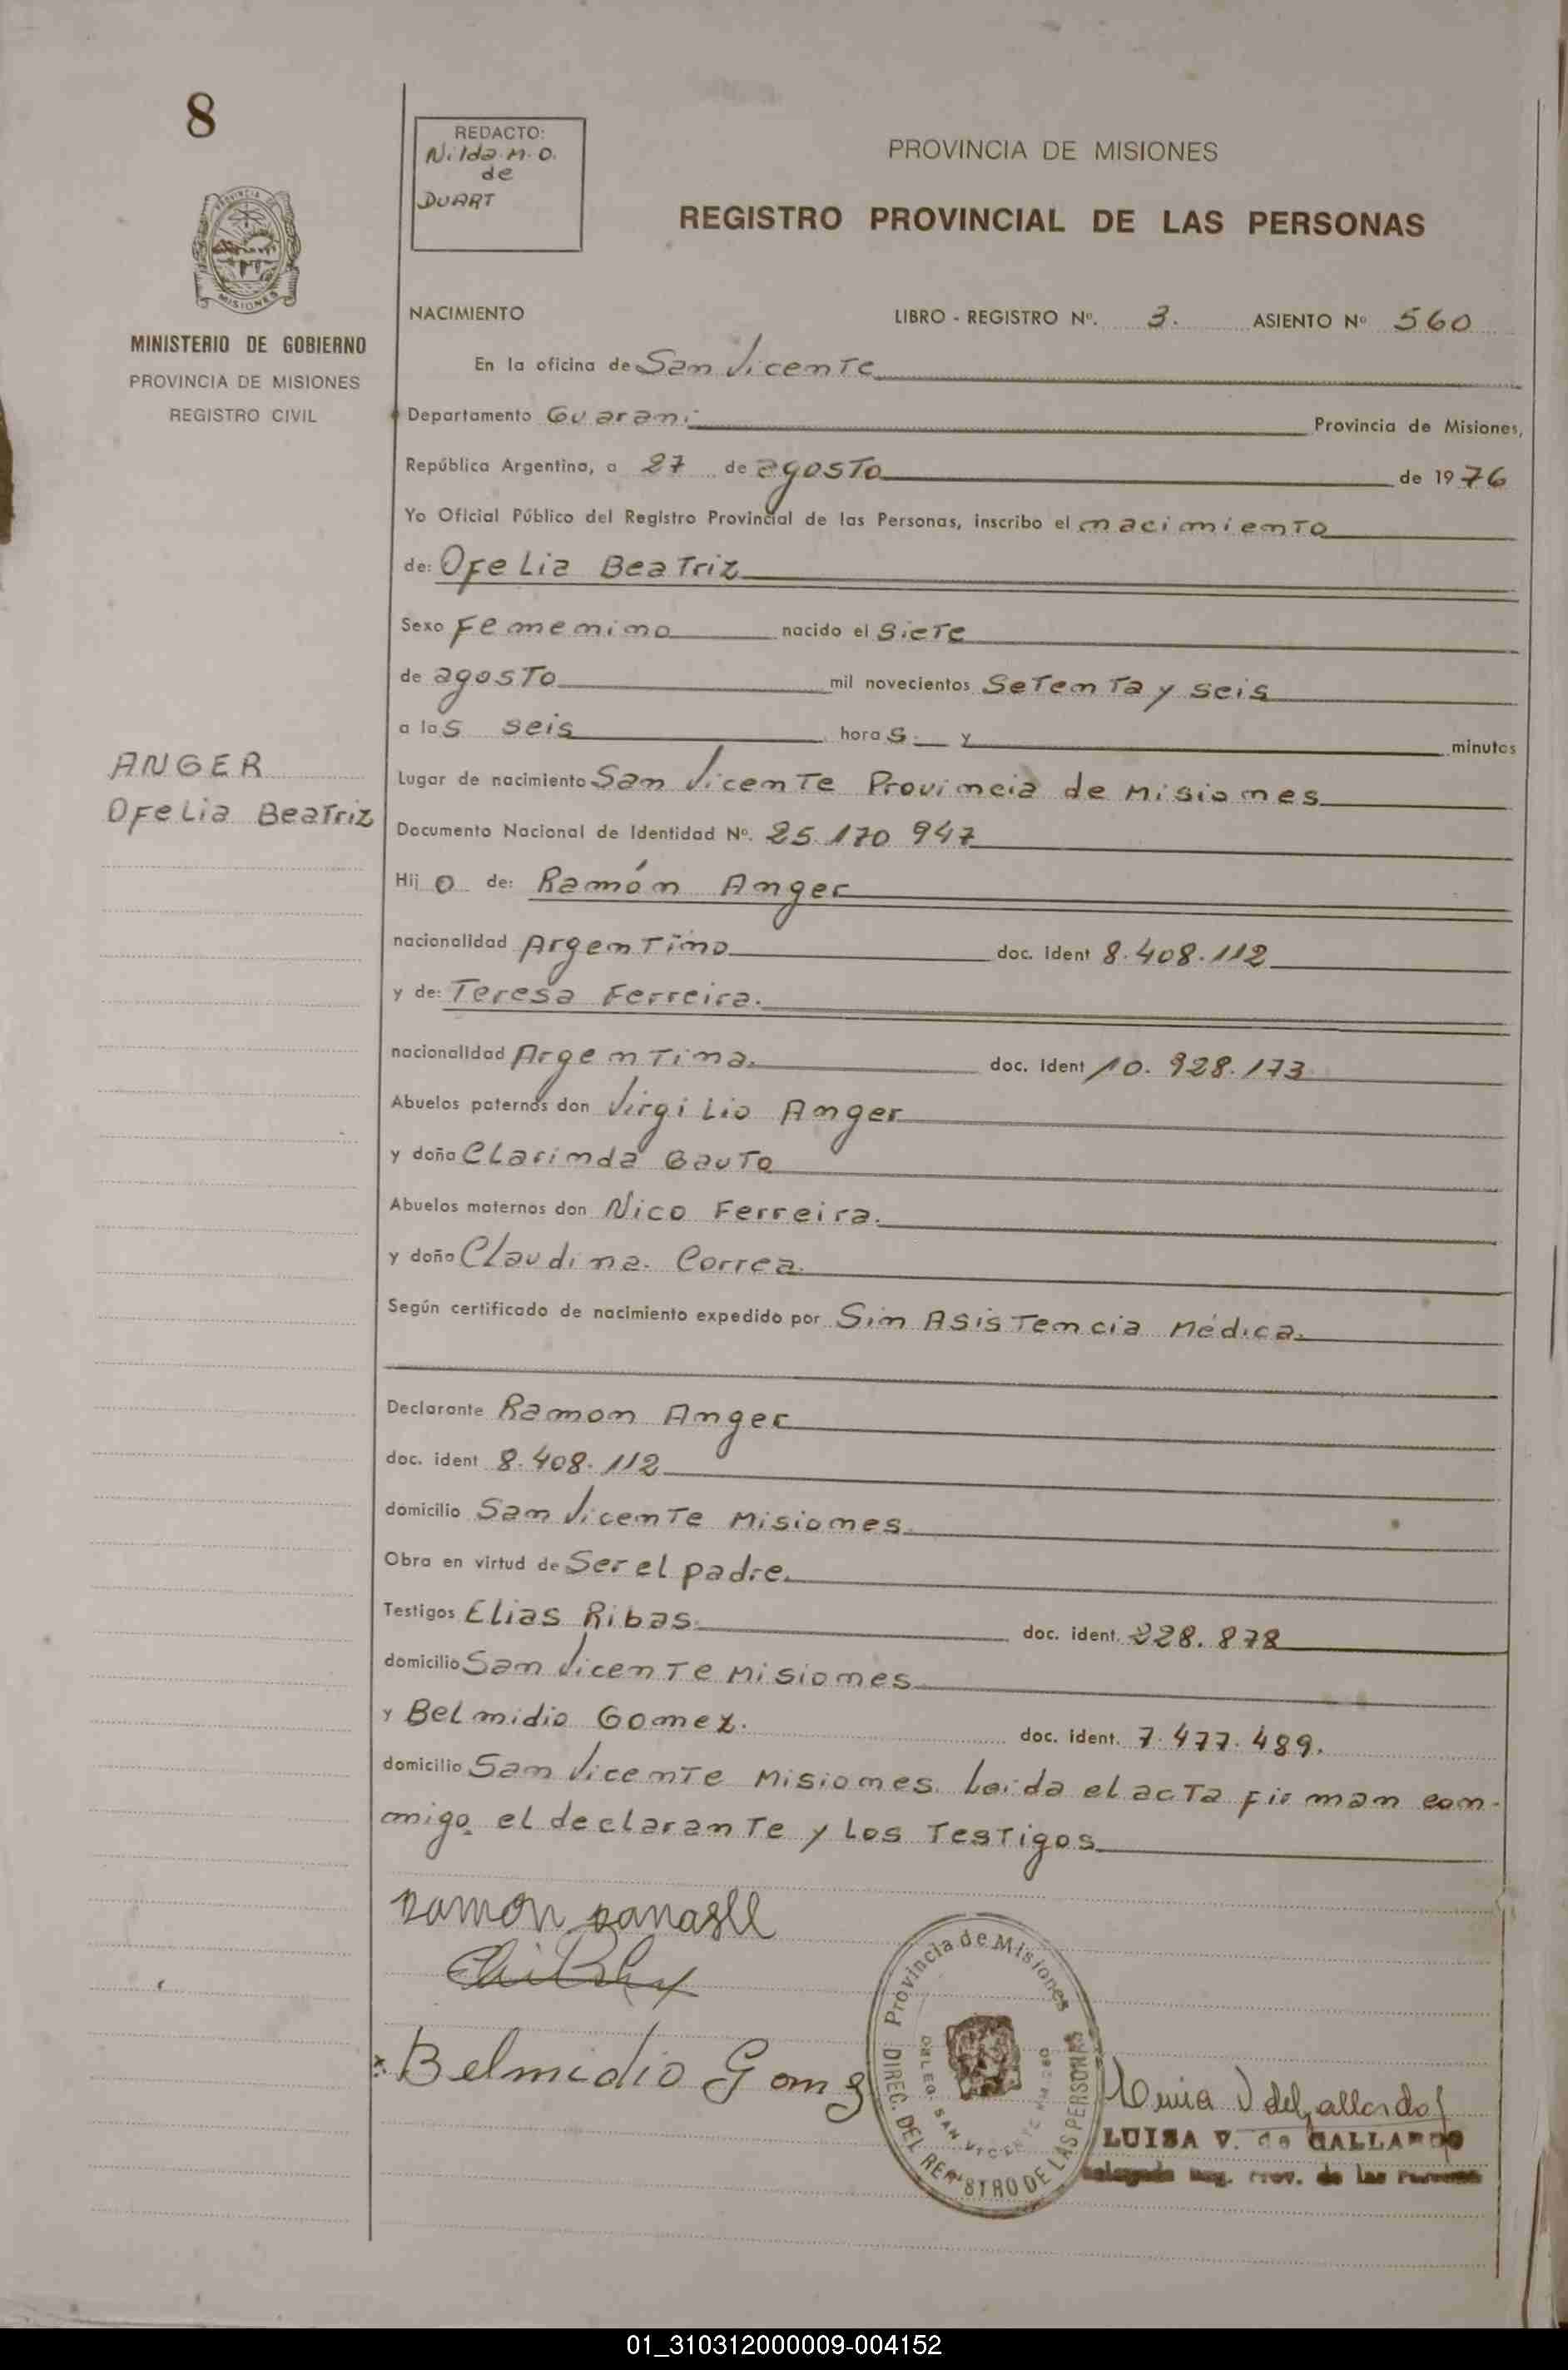 8
REDACTO:
Nilda M. O.
de
DUART
PROVINCIA DE MISIONES
REGISTRO PROVINCIAL DE LAS PERSONAS
PROVINCIA DE
MISIONES
MINISTERIO DE GOBIERNO
PROVINCIA DE MISIONES
REGISTRO CIVIL
NACIMIENTO LIBRO - REGISTRO Nº. 3. ASIENTO Nº 560
En la oficina de San Vicente
Departamento Guarani Provincia de Misiones,
República Argentina, a 27 de agosto de 1976
Yo Oficial Público del Registro Provincial de las Personas, inscribo el nacimiento
de: Ofelia Beatriz
Sexo Femenino nacido el siete
de agosto mil novecientos setenta y seis
a las seis horas. y minutos
ANGER
Ofelia Beatriz
Lugar de nacimiento San Vicente Provincia de Misiones
Documento Nacional de Identidad Nº. 25.170 947
Hij o de: Ramón Anger
nacionalidad Argentino doc. ident 8.408.112
y de: Teresa Ferreira.
nacionalidad Argentina. doc. ident 10.928.173
Abuelos paternos don Virgilio Anger
y doña Clarinda Gauto
Abuelos maternos don Nico Ferreira.
y doña Claudina. Correa.
Según certificado de nacimiento expedido por Sin Asistencia Médica.
Declarante Ramon Anger
doc. ident 8.408.112
domicilio San Vicente Misiones
Obra en virtud de Ser el padre.
Testigos Elias Ribas doc. ident. 228.878
domicilio San Vicente Misiones
y Belmidio Gomez. doc. ident. 7.477.489.
domicilio San Vicente Misiones. Leida el acta firman con-
migo el declarante y los Testigos
Ramon
Belmidio Gomz
Provincia de Misiones
DIREC. DEL REGISTRO DE LAS PERSONAS
DELEG. SAN VICENTE
Luisa V de Gallardo
LUISA V. de GALLARDO
Delegada Reg. Prov. de las Personas
01_310312000009-004152